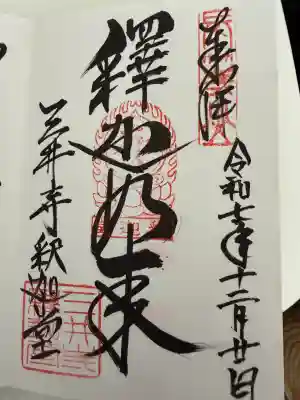 奉拝
令和七年十二月廿日
釋迦如来
三井寺釈迦堂